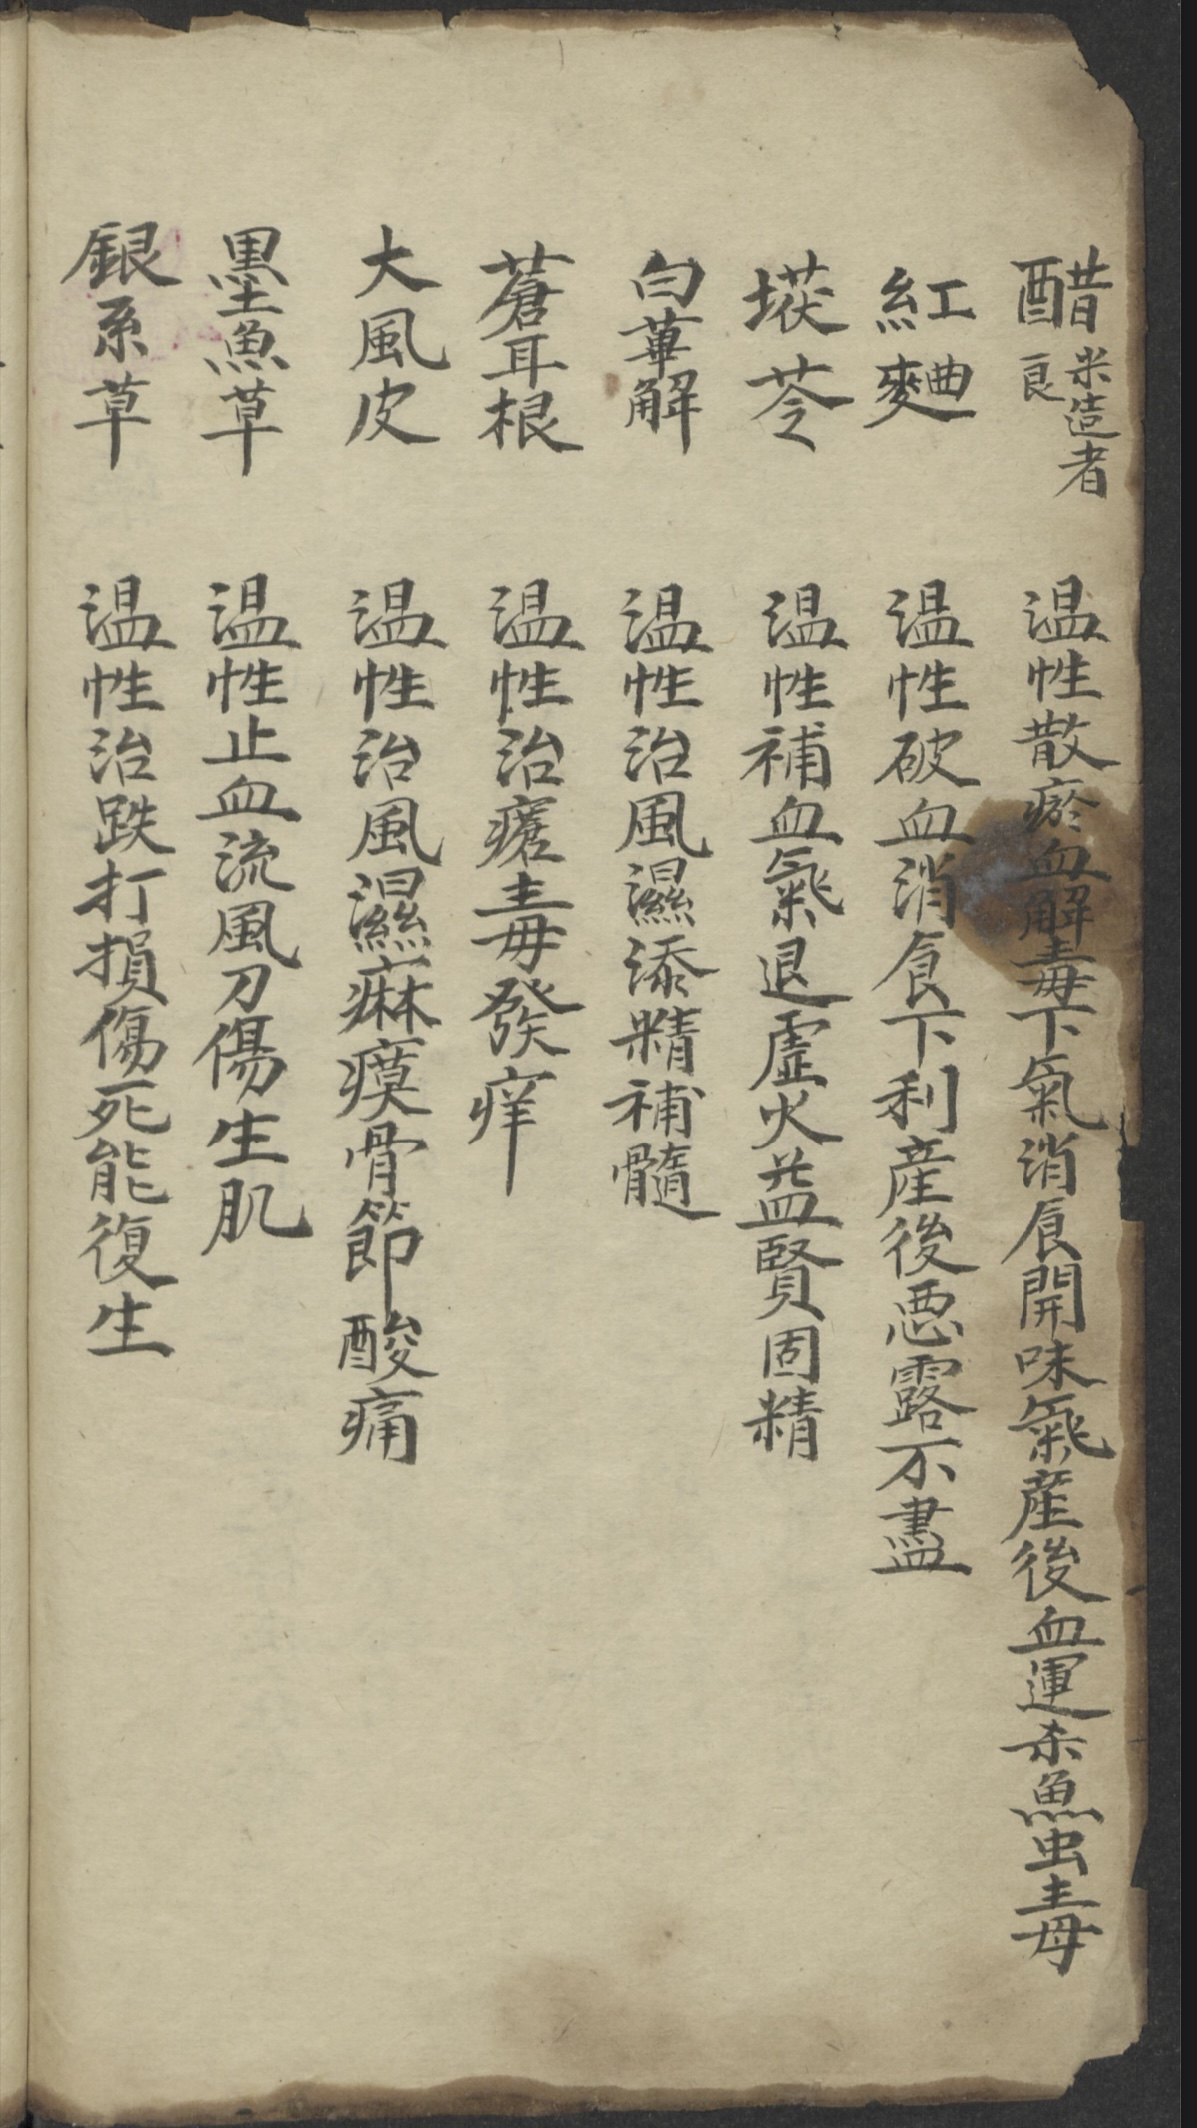 醋 米造者良 温性散瘀血解毒下氣消食開味氣産後血運杀魚虫毒
紅麯 温性破血消食下利産後恶露不盡
茯苓 温性補血氣退虛火益賢固精
白萆解 温性治風濕添精補髓
蒼耳根 温性治瘡毒發痒
大風皮 温性治風濕痳瘼骨節酸痛
墨魚草 温性止血流風刀傷生肌
銀系草 温性治跌打損傷死能復生